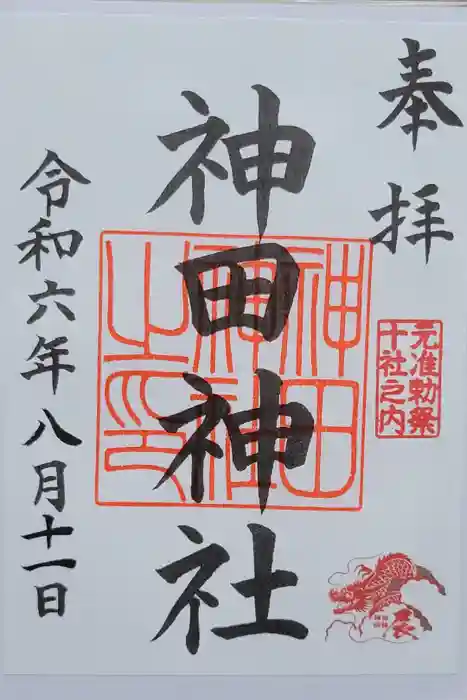 奉拝
元准勅祭
十社之内
神田神社
神田
神社
之印
令和六年八月十一日
辰